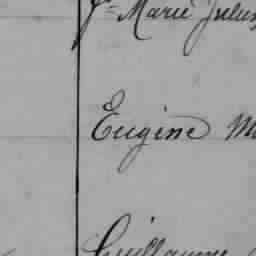 Jn Marie Jules
Eugène M
Guillaume